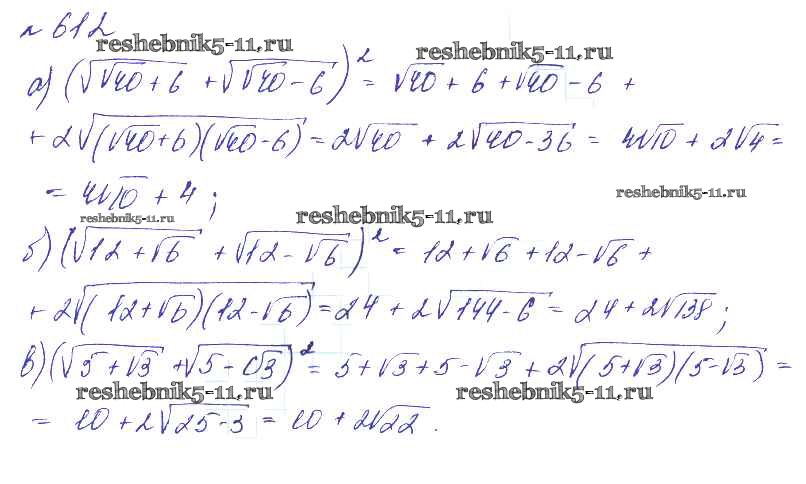 № 612
reshebnik5-11.ru reshebnik5-11.ru
а) (√(√40 + 6) + √(√40 - 6))² = √40 + 6 + √40 - 6 +
+ 2√((√40 + 6)(√40 - 6)) = 2√40 + 2√(40 - 36) = 4√10 + 2√4 =
= 4√10 + 4 ;
reshebnik5-11.ru
reshebnik5-11.ru reshebnik5-11.ru
б) (√(12 + √6) + √(12 - √6))² = 12 + √6 + 12 - √6 +
+ 2√((12 + √6)(12 - √6)) = 24 + 2√(144 - 6) = 24 + 2√138 ;
в) (√(5 + √3) + √(5 - √3))² = 5 + √3 + 5 - √3 + 2√((5 + √3)(5 - √3)) =
reshebnik5-11.ru reshebnik5-11.ru
= 10 + 2√(25 - 3) = 10 + 2√22 .